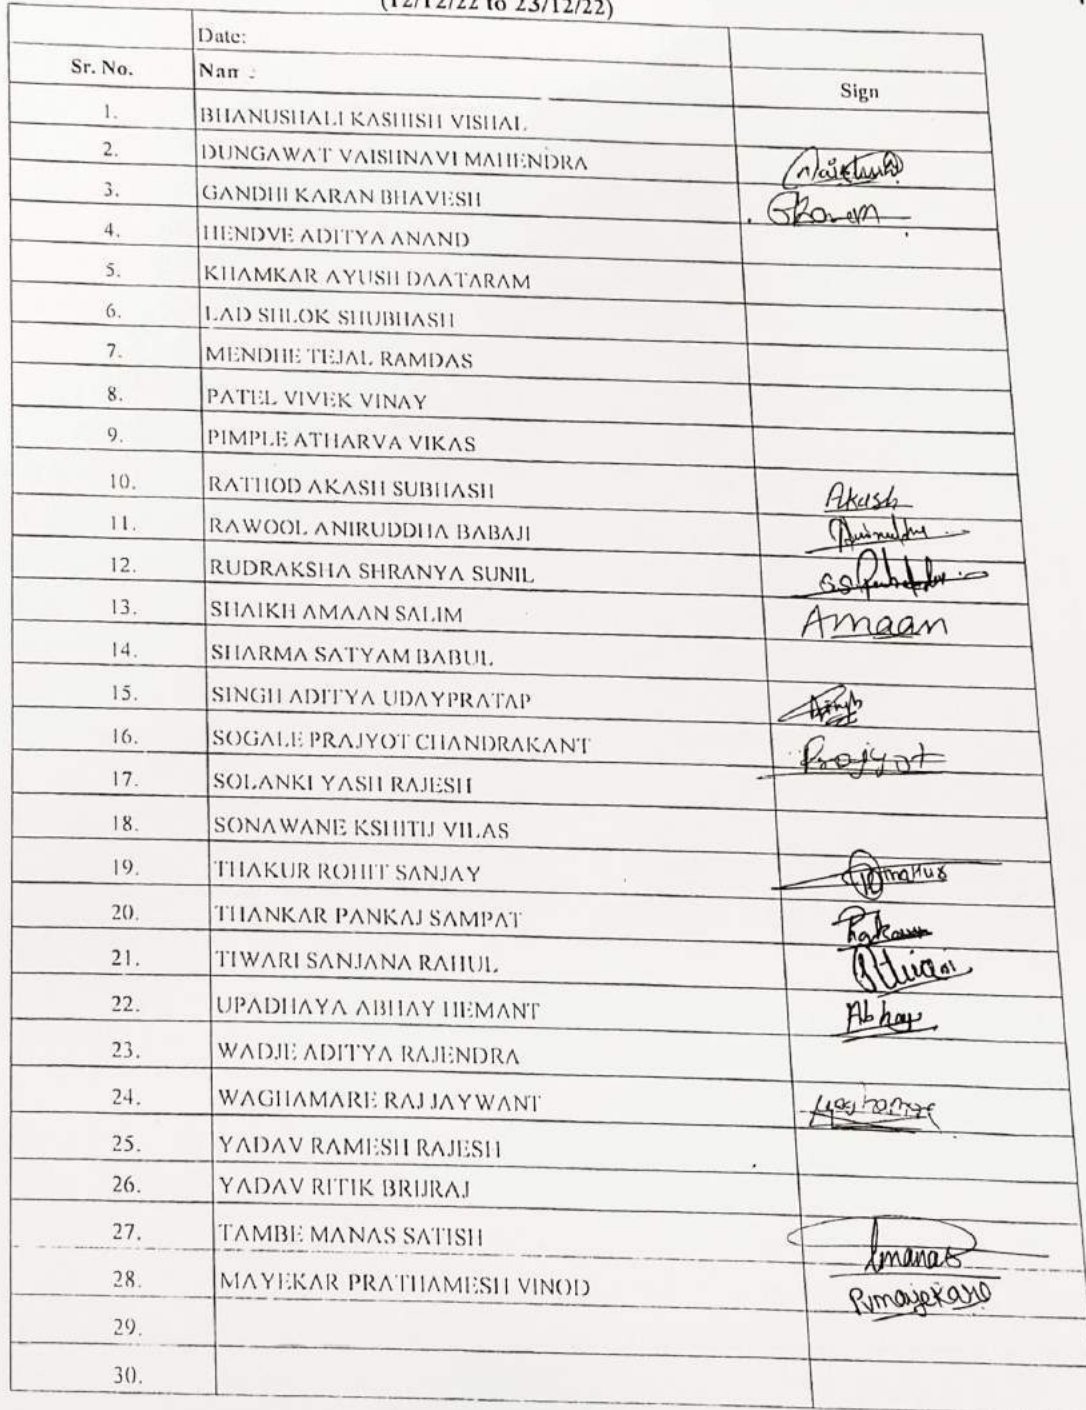 (12/12/22 to 23/12/22)
Date:
Sr. No. Nam : Sign
1. BHANUSHALI KASHISH VISHAL
2. DUNGAWAT VAISHNAVI MAHENDRA
3. GANDHI KARAN BHAVESH GKaran
4. HENDVE ADITYA ANAND
5. KHAMKAR AYUSH DAATARAM
6. LAD SHLOK SHUBHASH
7. MENDHE TEJAL RAMDAS
8. PATEL VIVEK VINAY
9. PIMPLE ATHARVA VIKAS
10. RATHOD AKASH SUBHASH Akash
11. RAWOOL ANIRUDDHA BABAJI
12. RUDRAKSHA SHRANYA SUNIL
13. SHAIKH AMAAN SALIM Amaan
14. SHARMA SATYAM BABUL
15. SINGH ADITYA UDAYPRATAP
16. SOGALE PRAJYOT CHANDRAKANT Prajyot
17. SOLANKI YASH RAJESH
18. SONAWANE KSHITIJ VILAS
19. THAKUR ROHIT SANJAY
20. THANKAR PANKAJ SAMPAT
21. TIWARI SANJANA RAHUL
22. UPADHAYA ABHAY HEMANT Abhay
23. WADJE ADITYA RAJENDRA
24. WAGHAMARE RAJ JAYWANT
25. YADAV RAMESH RAJESH
26. YADAV RITIK BRIJRAJ
27. TAMBE MANAS SATISH
28. MAYEKAR PRATHAMESH VINOD
29.
30.